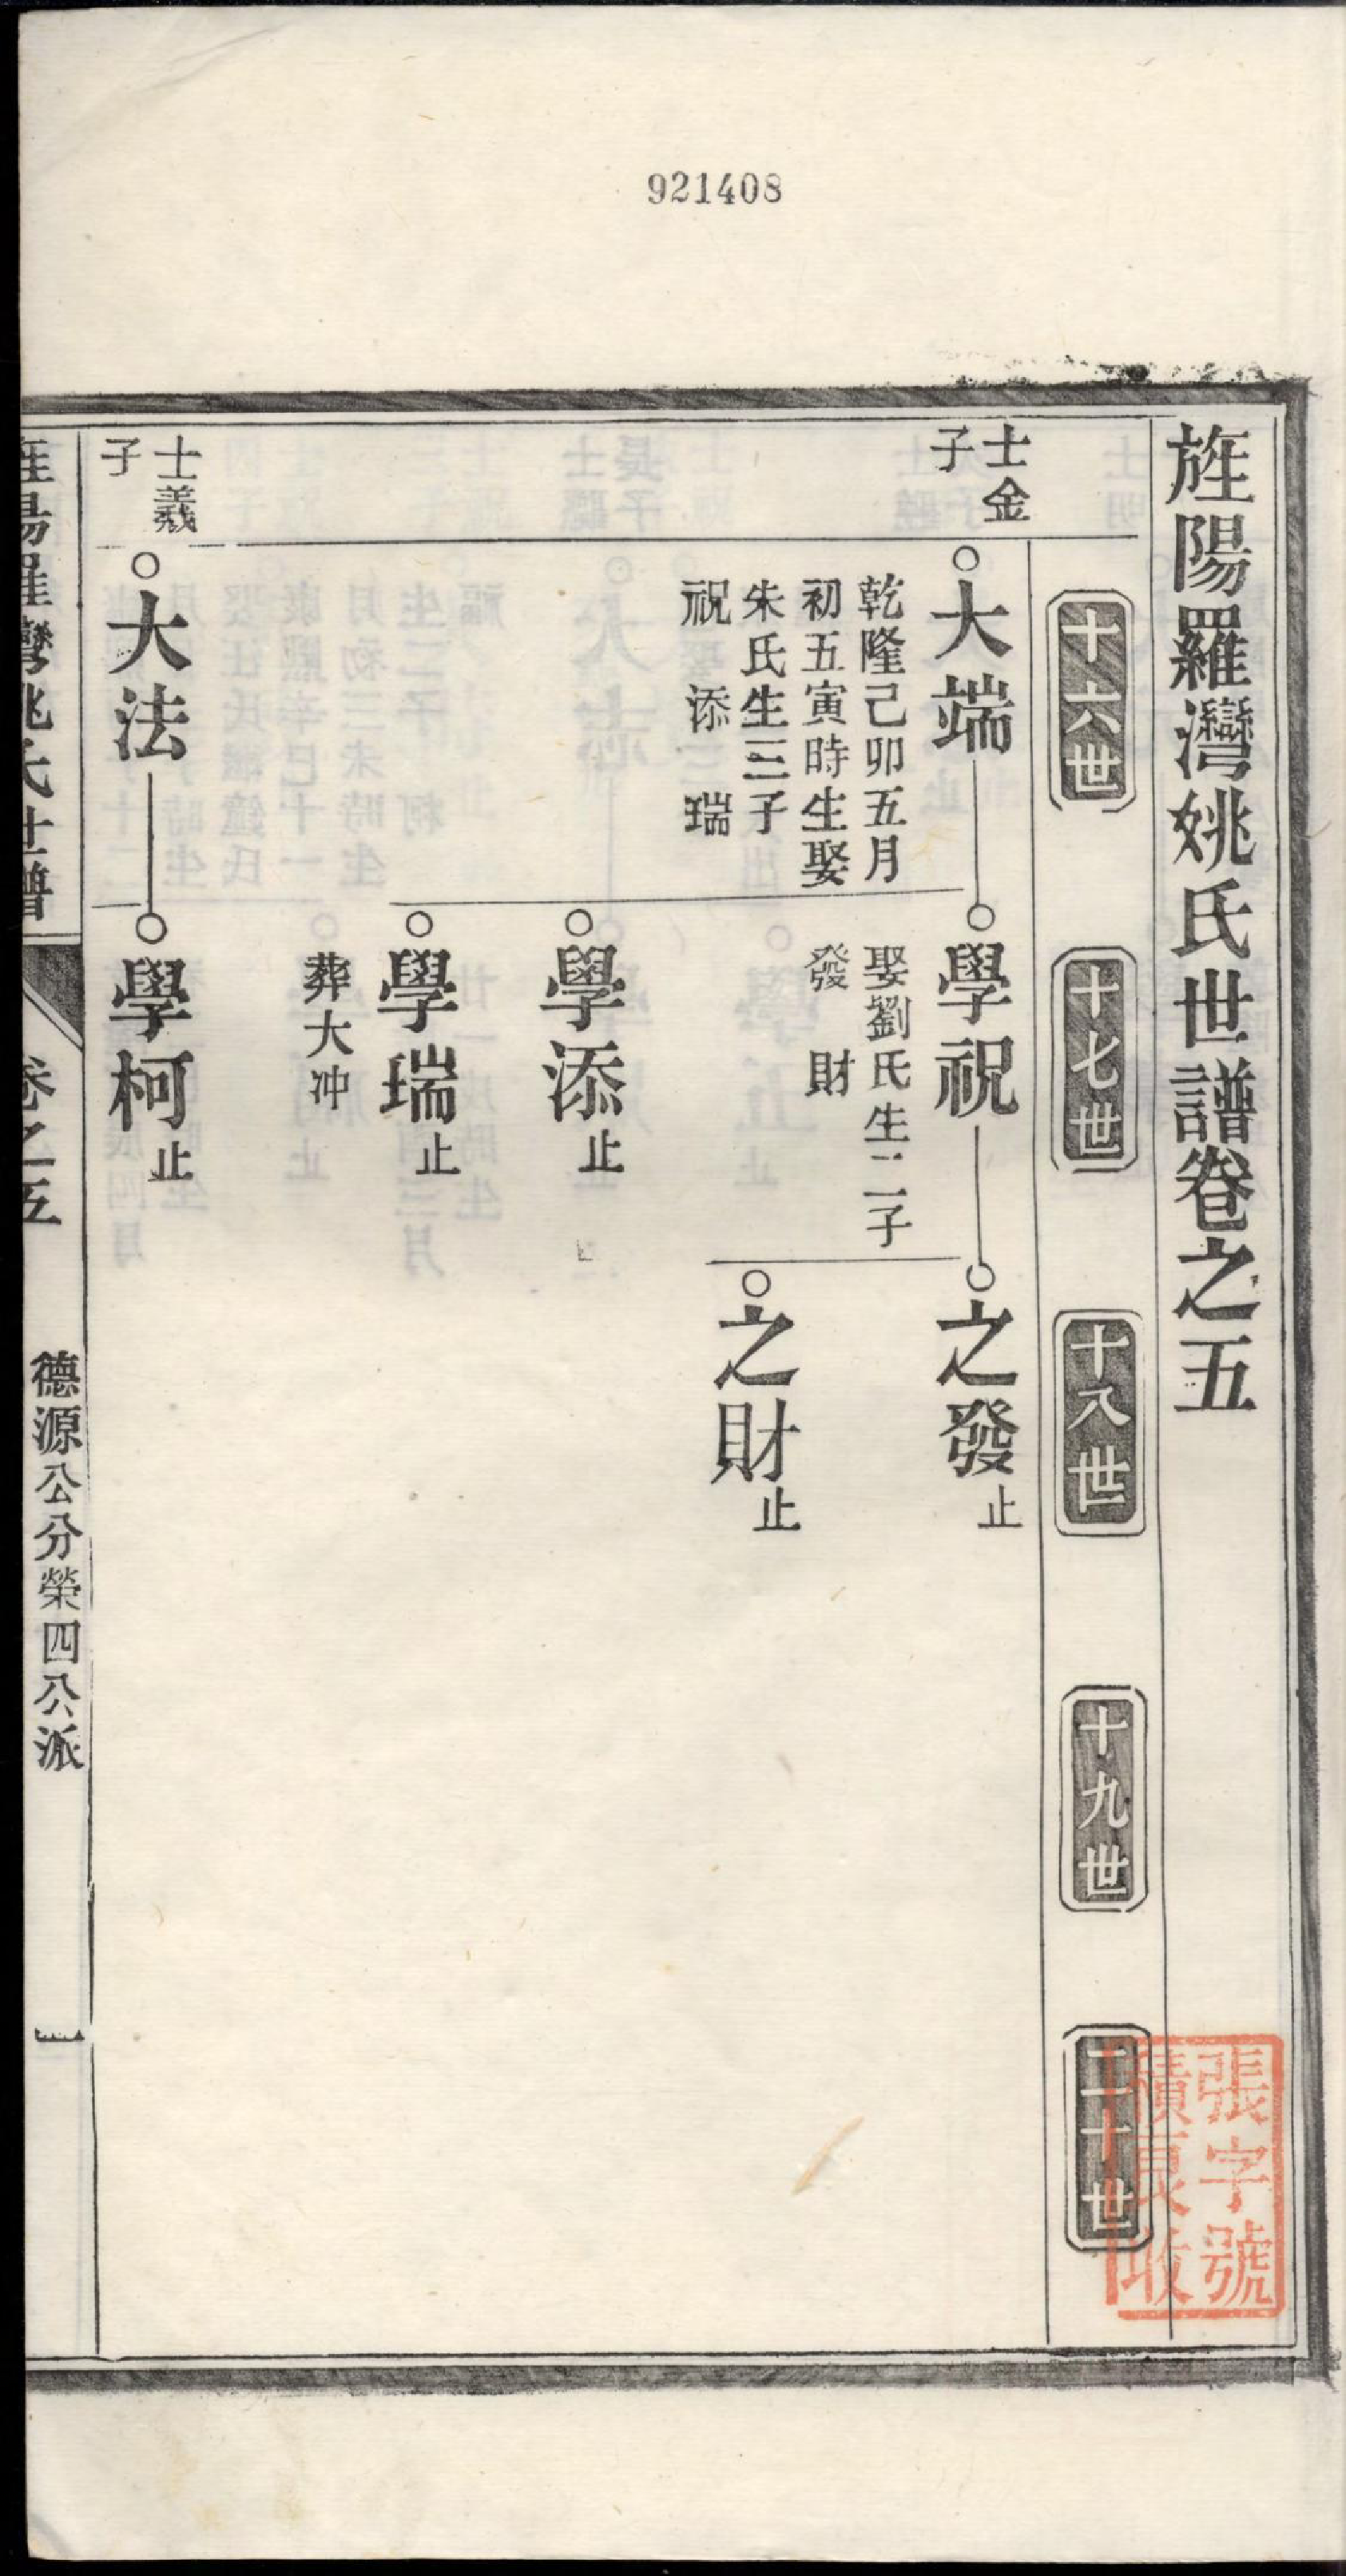 921408
旌陽羅灣姚氏世譜卷之五
十六世
十七世
十八世
十九世
二十世
士金
子
大端
乾隆己卯五月
初五寅時生娶
朱氏生三子
祝添瑞
學祝
娶劉氏生二子
發財
之發止
之財止
學添止
學瑞止
葬大冲
士義
子
大法
學柯止
旌陽羅灣姚氏世譜
卷之五
德源公分榮四公派
一
張字號
積良收